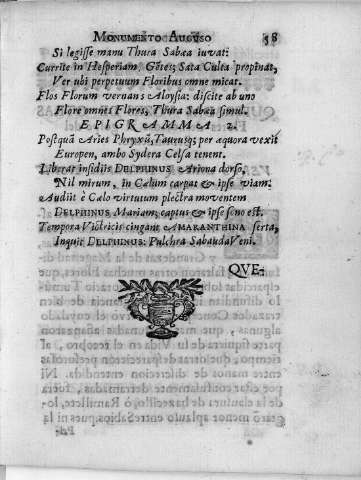 MONUMENTO AUGUSO 58
Si legisse manu Thura Sabæa iuvat:
Currite in Hesperiam, Gẽtes; Sata Culta propinat,
Ver ubi perpetuum Floribus omne micat.
Flos Florum vernans Aloysia: discite ab uno
Flore omnes Flores, Thura Sabæa simul.
EPIGRAMMA 2.
Postquã Aries Phryxũ, Taurusq; per æquora vexit
Europen, ambo Sydera Celsa tenent.
Liberat insidiis DELPHINUS Ariona dorso,
Nil mirum, in Cælum carpat & ipse viam:
Audiit è Cælo virtutum plectra moventem
DELPHINUS Mariam; captus & ipse sono est.
Tempora Victricis cingant AMARANTHINA serta,
Inquit DELPHINUS: Pulchra Sabauda Veni.
QUE-